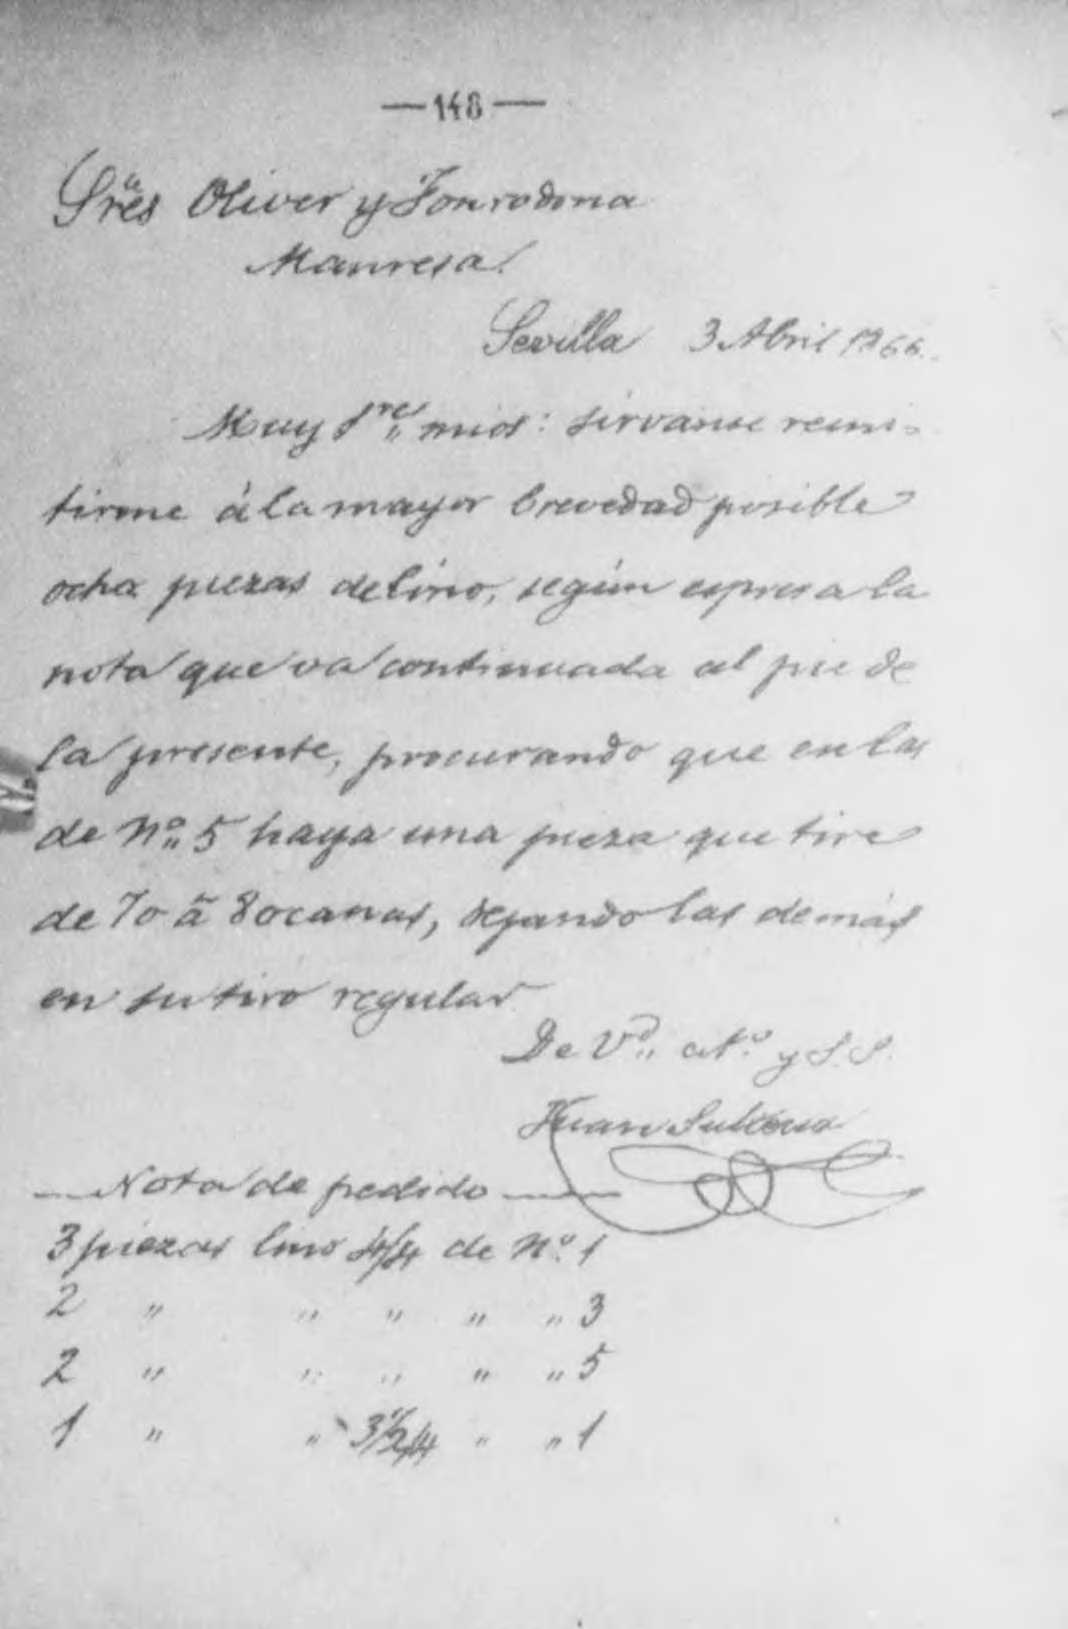 —148—
Sres Oliver y Fonrodona
Manresa.
Sevilla 3 Abril 1866.
Muy Sres mios: sirvanse remi-
tirme á la mayor brevedad posible
ocho piezas de lino, según espresa la
nota que va continuada al pie de
la presente, procurando que en las
de Nº 5 haya una pieza que tire
de 70 á 80 canas, dejando las demás
en su tiro regular
De Vd. atº. y S. S.
Juan
—Nota de pedido—
3 piezas lino 4/4 de Nº. 1
2 " " " " " 3
2 " " " " " 5
1 " " 3½/4 " " 1